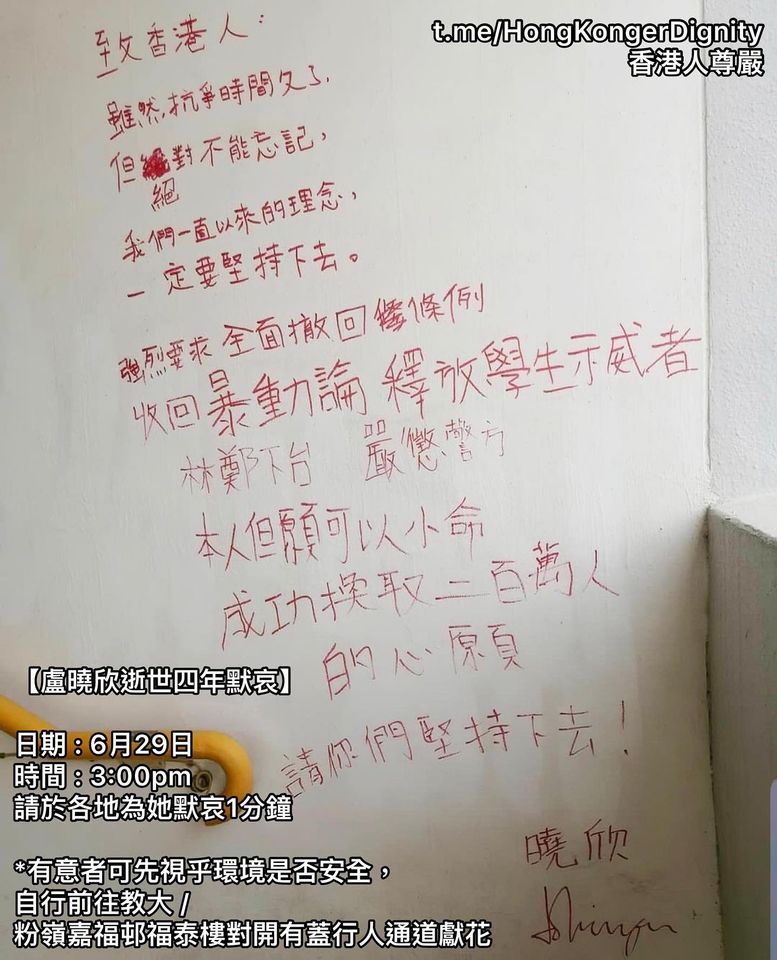 t.me/HongKongerDignity
香港人尊嚴
致香港人：
雖然，抗爭時間久了，
但絕對不能忘記，
我們一直以來的理念，
一定要堅持下去。
強烈要求 全面撤回條例
收回暴動論 釋放學生示威者
林鄭下台 嚴懲警方
本人但願可以小命
成功換取二百萬人
的心願
請你們堅持下去！
曉欣
【盧曉欣逝世四年默哀】
日期：6月29日
時間：3:00pm
請於各地為她默哀1分鐘
*有意者可先視乎環境是否安全，
自行前往教大 /
粉嶺嘉福邨福泰樓對開有蓋行人通道獻花